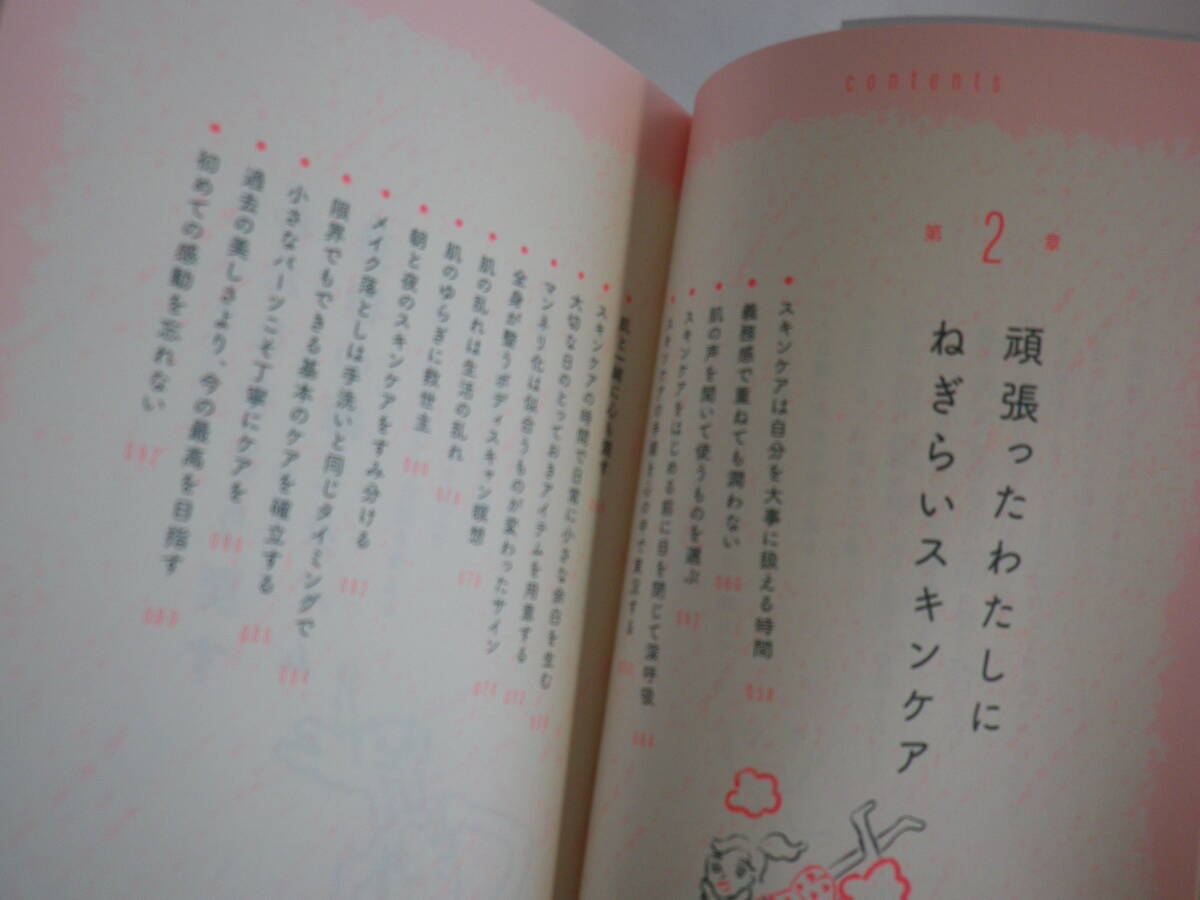 contents
第2章
頑張ったわたしに
ねぎらいスキンケア
スキンケアは自分を大事に扱える時間 058
義務感で重ねても潤わない 060
肌の声を聞いて使うものを選ぶ 062
スキンケアをはじめる前に目を閉じて深呼吸
スキンケアの
スキンケアの時間で日常に小さな余白を生む
大切な日のとっておきアイテムを用意する 072
マンネリ化は似合うものが変わったサイン 074
全身が整うボディスキャン瞑想
肌の乱れは生活の乱れ
肌のゆらぎに救世主
朝と夜のスキンケアをすみ分ける 082
メイク落としは手洗いと同じタイミングで 084
限界でもできる基本のケアを確立する
小さなパーツこそ丁寧にケアを
過去の美しさより、今の最高を目指す
初めての感動を忘れない 092